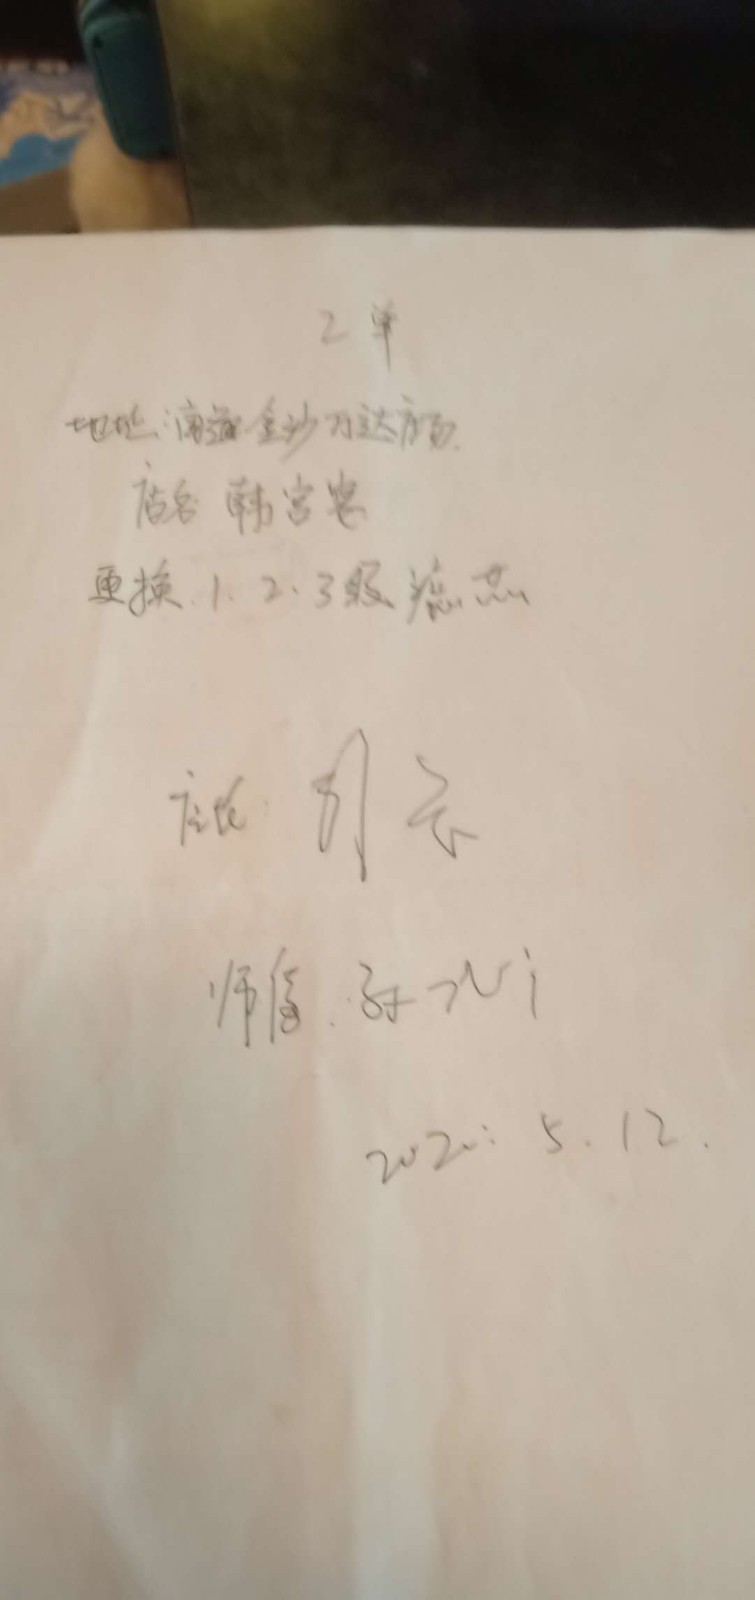 工单
地址:南通金沙万达广场
店名 韩宫宴
更换.1.2.3级滤芯
店长:
师傅.孙
2020.5.12.